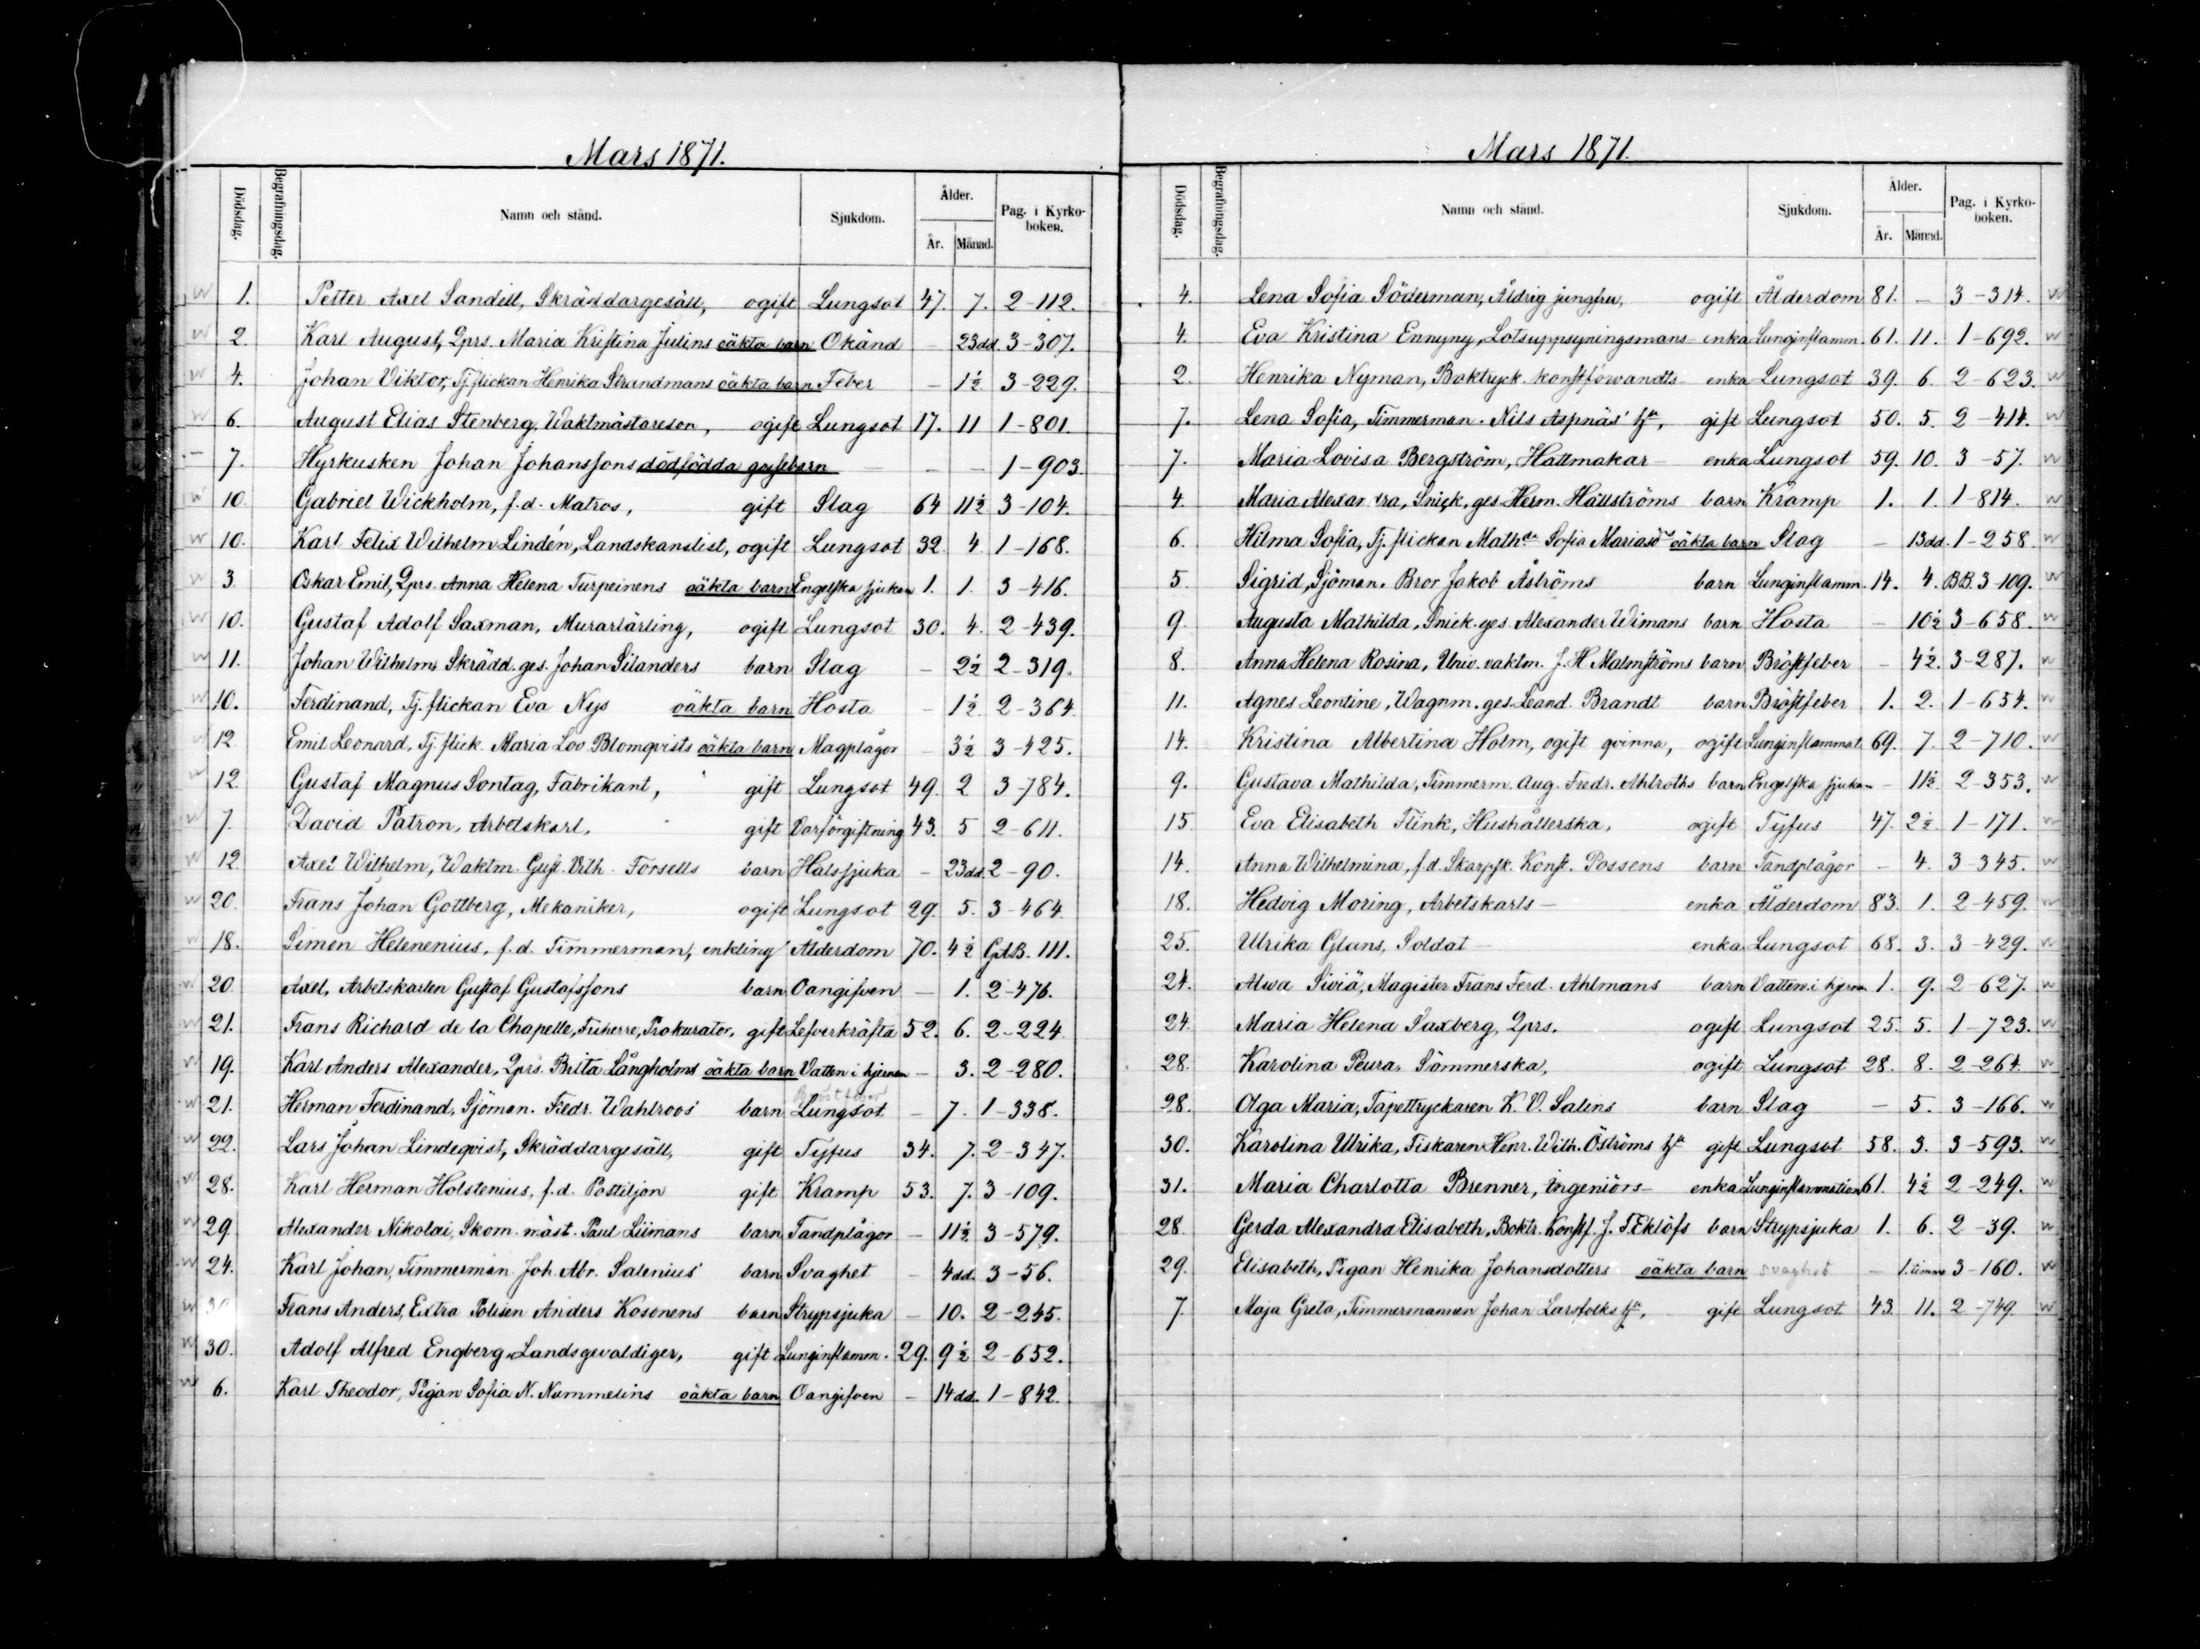 Mars 1871.
Dödsdag. Begrafningsdag. Namn och stånd. Sjukdom. Ålder. År. Månad. Pag. i Kyrko-boken.
1. Petter Axel Sandell, Skräddargesäll, ogift Lungsot 47. 7. 2-112.
2 Karl August, Qprs. Maria Kristina Julins oäkta barn Okänd - 23dd. 3-307.
4. Johan Viktor, Tj. flickan Henrika Strandmans oäkta barn Feber - 1½ 3-229.
6. August Elias Stenberg, Waktmästareson, ogift Lungsot 17. 11 1-801.
7. Hyrkusken Johan Johanssons dödfödda gossebarn - - - 1-903.
10. Gabriel Wickholm, f.d. Matros, gift Slag 64 11½ 3-104.
10. Karl Felix Wilhelm Lindén, Landskanslist, ogift Lungsot 32. 4 1-168.
3. Oskar Emil, Qprs. Anna Helena Turpeinens oäkta barn Engelska sjukan 1. 1. 3-416.
10. Gustaf Adolf Saxman, Murarlärling, ogift Lungsot 30. 4. 2-439.
11. Johan Wilhelm, Skrädd. ges. Johan Silanders barn Slag - 2½ 2-319.
10. Ferdinand, Tj. flickan Eva Nys oäkta barn Hosta - 1½ 2-364
12. Emil Leonard, Tj. flick. Maria Lov. Blomqvists oäkta barn Magplågor - 3½ 3-425.
12. Gustaf Magnus Sontag, Fabrikant, gift Lungsot 49. 2 3-784.
7. David Patron, Arbetskarl, gift Varförgiftning 43. 5 2-611.
12. Axel Wilhelm, Waktm. Gust. Vilh. Forsells barn Halssjuka - 23dd. 2-90.
20. Frans Johan Gottberg, Mekaniker, ogift Lungsot 29. 5. 3-464
18. Simon Helenenius, f.d. Timmerman, enkling Ålderdom 70. 4½ G.A.B. 111.
20. Axel, Arbetskarlen Gustaf Gustafssons barn Oangifven - 1. 2-476.
21. Frans Richard de la Chapelle, Friherre, Prokurator, gift Lefverkräfta 52. 6. 2-224
19. Karl Anders Alexander, Qprs. Brita Långholms oäkta barn Vatten i hjernan - 3. 2-280.
21. Herman Ferdinand, Sjöman. Fredr. Wahlroos' barn Lungsot - 7. 1-338.
22. Lars Johan Lindeqvist, Skräddargesäll, gift Tyfus 34. 7. 2-347.
28. Karl Herman Holstenius, f.d. Postiljon gift Kramp 53. 7. 3-109.
29. Alexander Nikolai, Skom. mäst. Paul Liimans barn Tandplågor - 11½ 3-579.
24. Karl Johan, Timmerman Joh. Abr. Salenius' barn Svaghet - 4dd. 3-56.
30 Frans Anders, Extra Polisen Anders Kosonens barn Strypsjuka - 10. 2-245.
30. Adolf Alfred Engberg, Landsgevaldiger, gift Lunginflamm. 29. 9½ 2-652.
6. Karl Theodor, Pigan Sofia N. Nummelins oäkta barn Oangifven - 14dd. 1-842.
Mars 1871.
Dödsdag. Begrafningsdag. Namn och stånd. Sjukdom. Ålder. År. Månad. Pag. i Kyrko-boken.
4. Lena Sofia Söderman, Åldrig jungfru, ogift Ålderdom 81. - 3-314.
4. Eva Kristina Ennyny, Lotsuppsyningsmans- enka Lunginflamm. 61. 11. 1-692.
2. Henrika Nyman, Boktryck. konstförvandts- enka Lungsot 39. 6. 2-623.
7. Lena Sofia, Timmerman. Nils Aspnäs' h., gift Lungsot 50. 5. 2-414.
7. Maria Lovisa Bergström, Hattmakar- enka Lungsot 59. 10. 3-57.
4. Maria Alexandra, Snick. ges. Herm. Hällströms barn Kramp 1. 1. 1-814.
6. Hilma Sofia, Tj. flickan Mathda Sofia Mariasds oäkta barn Slag - 13dd. 1-258.
5. Sigrid, Sjöman. Bror Jakob Åströms barn Lunginflamm. 14. 4. B.B. 3-109.
9. Augusta Mathilda, Snick. ges. Alexander Wimans barn Hosta - 10½ 3-658.
8. Anna Helena Rosina, Univ. vaktm. J. H. Malmströms barn Bröstfeber - 4½. 3-287.
11. Agnes Leontine, Wagnm. ges. Leand. Brandt barn Bröstfeber 1. 2. 1-654.
14. Kristina Albertina Holm, ogift qvinna, ogift Lunginflammat. 69. 7. 2-710.
9. Gustava Mathilda, Timmerm. Aug. Fredr. Ahlroths barn Engelska sjukan - 11½ 2-353.
15. Eva Elisabeth Flink, Hushållerska, ogift Tyfus 47. 2½ 1-171.
14. Anna Wilhelmina, f.d. Skarpsk. Konst. Possens barn Tandplågor - 4. 3-345.
18. Hedvig Moring, Arbetskarls- enka Ålderdom 83. 1. 2-459.
25. Ulrika Glans, Soldat- enka Lungsot 68. 3. 3-429.
24. Alwa Siviä, Magister Frans Ferd. Ahlmans barn Vatten i hjernan 1. 9. 2-627.
24. Maria Helena Saxberg, Qprs. ogift Lungsot 25. 5. 1-723.
28. Karolina Peura, Sömmerska, ogift Lungsot 28. 8. 2-264.
28. Olga Maria, Tapettryckaren K. V. Salins barn Slag - 5. 3-166.
30. Karolina Ulrika, Fiskaren Henr. Wilh. Öströms h. gift Lungsot 58. 3. 3-593.
31. Maria Charlotta Brenner, Ingeniörs- enka Lunginflammation 61. 4½ 2-249.
28. Gerda Alexandra Elisabeth, Boktr. Konstf. J. T. Eklöfs barn Strypsjuka 1. 6. 2-39.
29. Elisabeth, Pigan Henrika Johansdotters oäkta barn svaghet - 1. timme 3-160.
7. Maja Greta, Timmermannen Johan Larsfolks h., gift Lungsot 43. 11. 2-749.